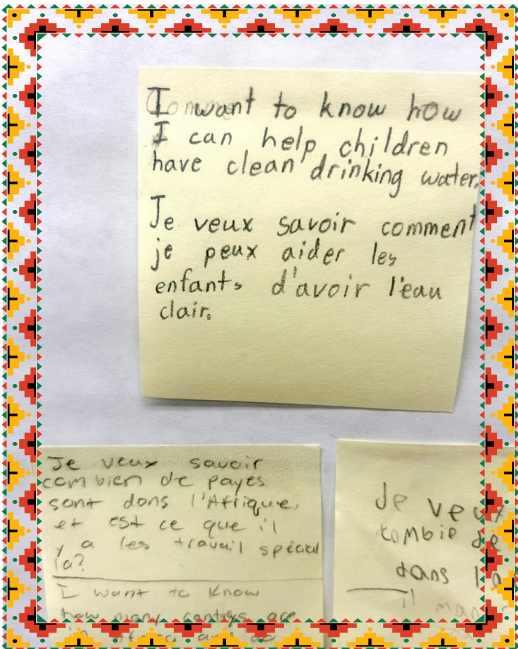 I want to know how
I can help children
have clean drinking water.
Je veux savoir comment
je peux aider les
enfants d'avoir l'eau
clair.
Je veux savoir
combien de payes
sont dans l'Afrique,
et est ce que il
y a les travail spécial
la?
I want to know
how many contrys are
Je veux
combie de
dans l'
il